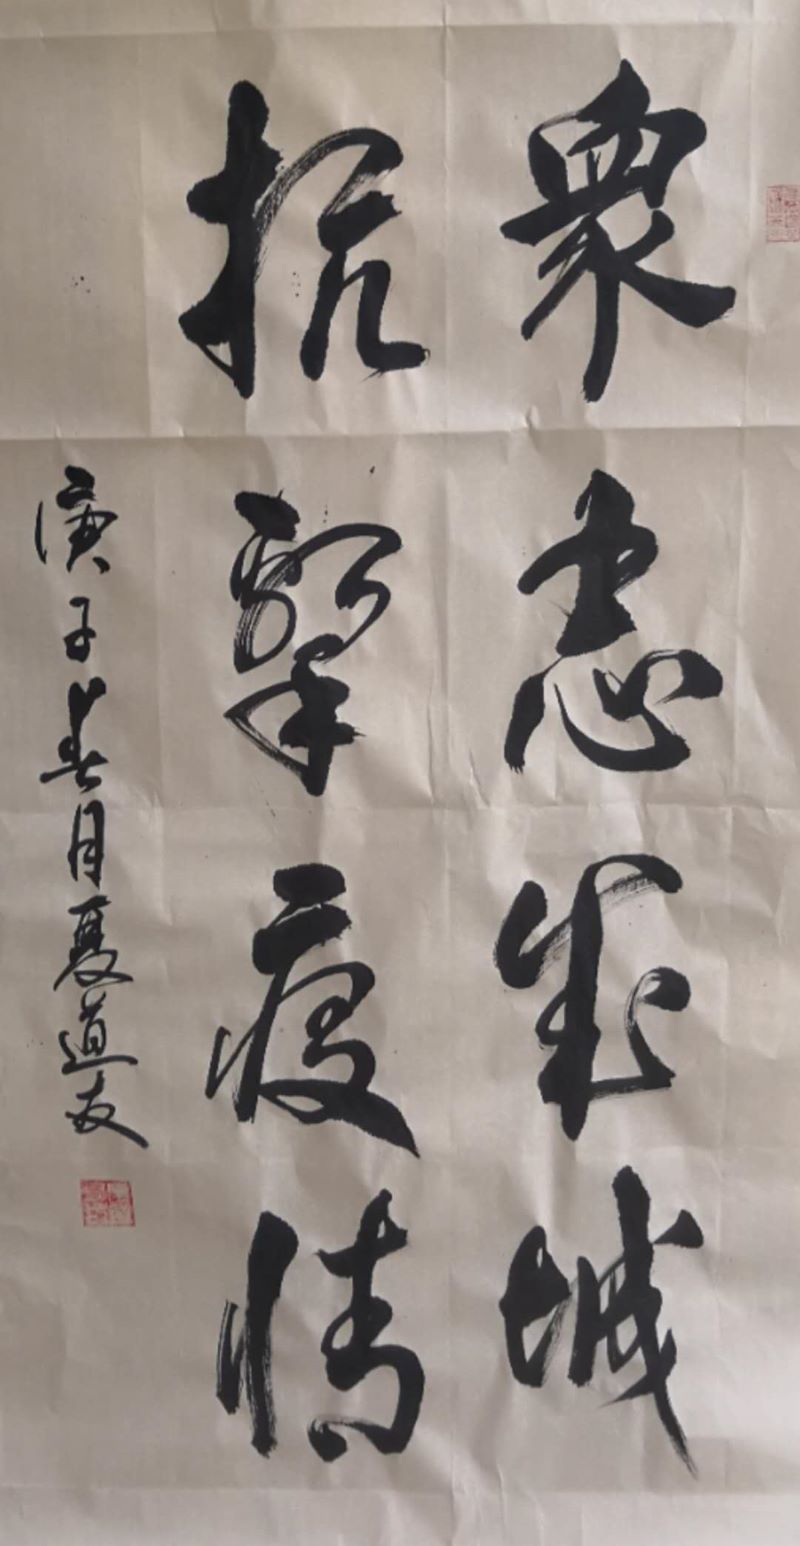 眾志成城
抗擊疫情
庚子春月夏道友